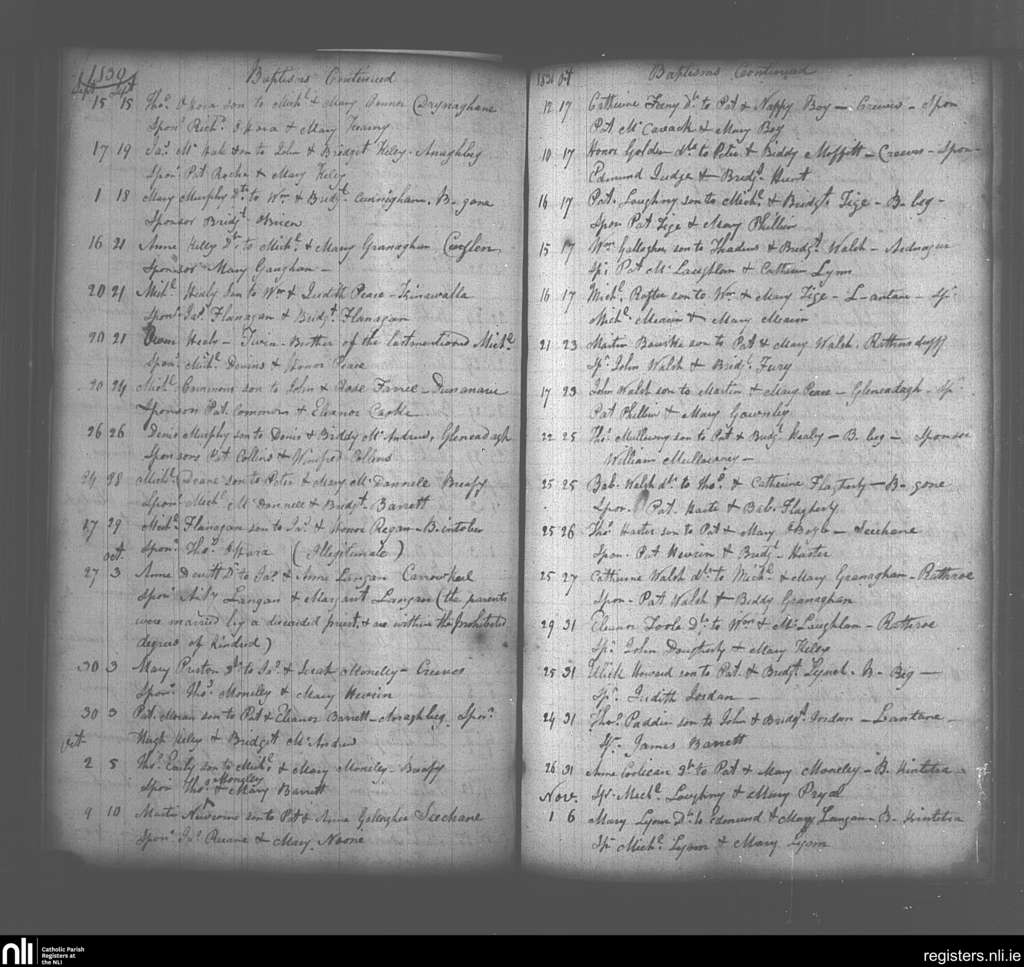 1830 Baptisms Continued
Sept Sept
15 15 Thos. O'Hora son to Michl. & Mary Connor
Sponr. Richd. O'Hora & Mary
17 19 Jas. Mc Hale son to John & Bridget Kiley - Anaghbeg
Sponr. Pat Roche & Mary Kiley
1 18 Mary Murphy Dtr. to Wm. & Bridgt. Cuningham. B-gana
Sponsor Bridgt. OBrien
16 21 Anne Kelly Dr. to Michl. & Mary Granaghan
Sponsor Mary Gaughan -
20 21 Michl. Healy Son to Wm & Judith Peace - Kinawalla
Sponr. Jas. Flanagan & Bridgt. Flanagan
20 21 Owen Healy - Twin - Brother of the last mentioned Michl.
Sponr. Michl. Devins & Honor Peace
20 24 Michl. Commons son to John & Rose
Sponsors Pat Commons & Eleanor
26 26 Denis Murphy son to Denis & Biddy Mc Andrew, Gleneadagh
Sponsors Pat Collins & Winifred Collins
24 28 Michl. Deane son to Peter & Mary Mc Donnell
Sponr. Michl. Mc Donnell & Bridgt. Barrett
27 29 Michl. Flanagan son to Jas. & Honor Regan - B. intober
Oct. Sponr. Thos. (Illegitimate)
27 3 Anne Devitt Dr. to Jas. & Anne Langan Carrowkeel
Sponr. Langan & Margaret Langan (the parents
were married by a discarded priest, & are within the prohibited
degrees of Kindred)
30 3 Mary Preston Dr. to Jas. & Sarah Moneley - Creeves
Sponr. Thos. Moneley & Mary
30 3 Pat. Moran son to Pat & Eleanor Barrett - Anaghbeg, Sponr.
Oct Hugh Kiley & Bridget Mc Andrew
2 5 Thos. Early son to Michl. & Mary Moneley -
Moneley
Sponr. Thos. & Mary Barrett
9 10 Martin son to Pat & Anne Gallagher Seechane
Sponr. Jas. Ruane & Mary Noone
183 Oct Baptisms Continued
12 17 Catherine Feeny Dr. to Pat & Nappy Boy - Creeves - Spon
Pat Mc Cavack & Mary Boy
10 17 Honor Golden dtr. to Peter & Biddy Moffitt - Creeves - Spon -
Edmund Judge & Bridgt. Hunt
14 17 Pat. Loughny son to Michl. & Bridgt. Tige - B. beg -
Spon Pat Tige & Mary Phillin
15 17 Wm. Gallagher son to Thadeus & Bridgt. Walsh - Ardnagar
Spr. Pat Mc Laughlan & Cathrin Lynn
16 17 Michl. Rafter son to Wm. & Mary Tige - L-antan - Spr.
Michl. Mearin & Mary Mearin
21 23 Martin Bourke son to Pat & Mary Walsh. Rathnaduff
Sr. John Walsh & Bridgt. Fury
17 23 John Walsh son to Martin & Mary Peace - Gleneadagh - Spr.
Pat Phillin & Mary
22 25 Thos. Mullowny son to Pat & Bridgt. Healy - B. beg - Sponsor
William Mullowney -
25 25 Bab. Walsh dtr. to Thos. & Catherine Flagherty - B-gone
Spon. Pat. Harte & Bab. Flagherty
25 26 Thos. Harter son to Pat & Mary OBoyle - Seechane
Spon. Pat & Bridgt. Harter
25 27 Catherine Walsh dtr. to Michl. & Mary Granaghan - Rathroe
Spon. Pat Walsh & Biddy Granaghan
29 31 Eleanor Toole Dtr. to Wm & Mc Laughlan - Rathroe
Spr. John Dougherty & Mary Kiley
25 31 Ulick Howard son to Pat. & Bridgt. Lynch. B - Big -
Spr. Judith Jordan -
24 31 Thos. Padden son to John & Bridgt. Jordan - Lantane -
Sr. James Barrett
26 31 Anne Dr. to Pat & Mary Moneley - B. Kintitia
Nov. Spr. Michl. Loughny & Mary Pryal
1 6 Mary Lyon Dtr. to Edmund & Mary Langan - B. Kintitia
Spr Michl. Lyon & Mary Lyon
nli Catholic Parish
Registers at
the NLI
registers.nli.ie